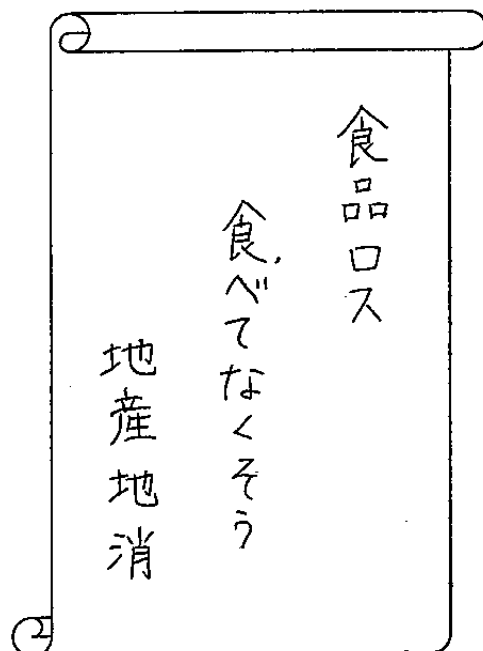 食品ロス
食べてなくそう
地産地消